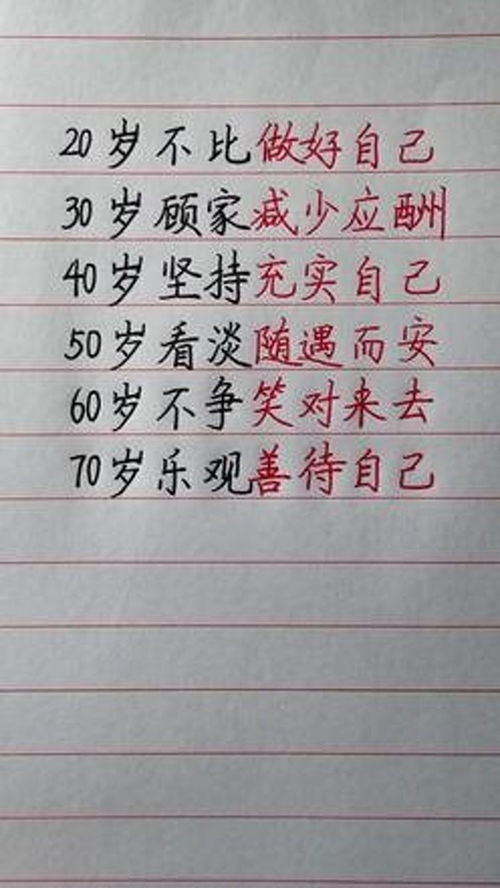 20岁不比做好自己
30岁顾家减少应酬
40岁坚持充实自己
50岁看淡随遇而安
60岁不争笑对来去
70岁乐观善待自己